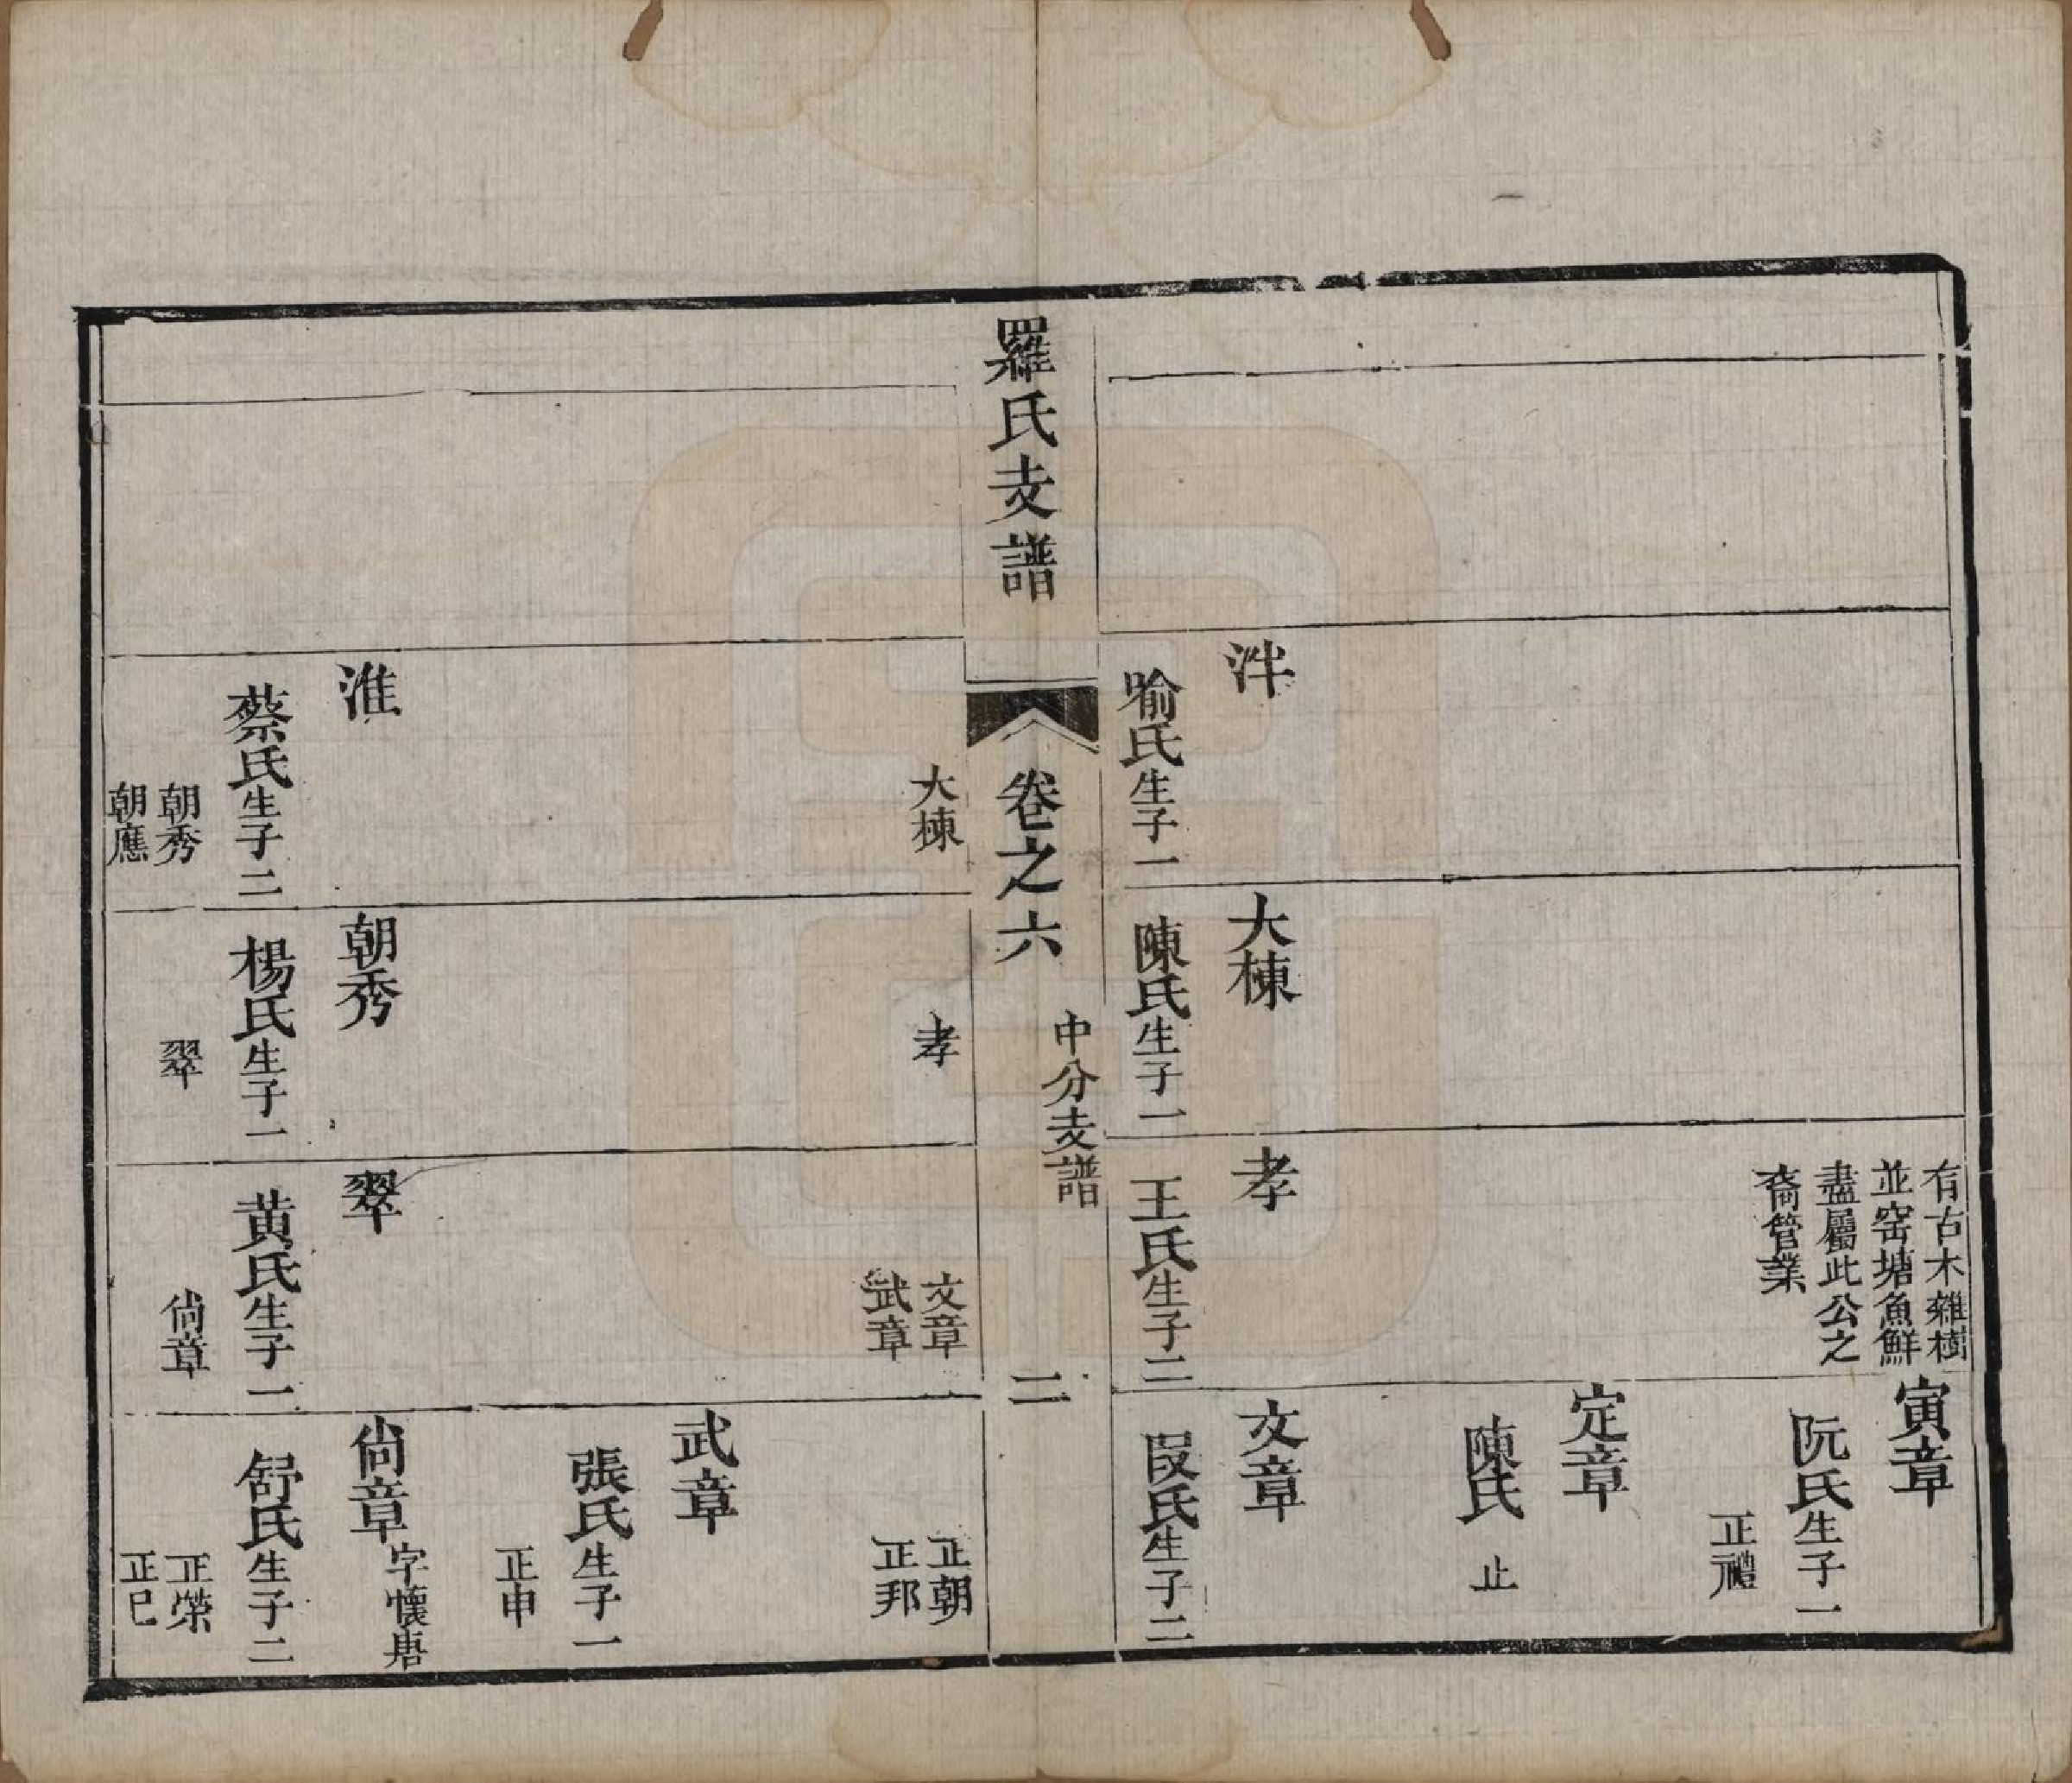 有古木雜樹
並窑塘魚鮮
盡屬此公之
裔管業
寅章
阮氏生子一
正禮
定章
陳氏 止
泮
喻氏生子一
大棟
大棟
陳氏生子一
孝
孝
王氏生子二
文章
武章
文章
段氏生子二
正朝
正邦
羅氏支譜
卷之六
中分支譜
二
武章
張氏生子一
正申
淮
蔡氏生子二
朝秀
朝應
朝秀
楊氏生子一
翠
翠
黃氏生子一
尚章
尚章 字懷唐
舒氏生子二
正榮
正巳